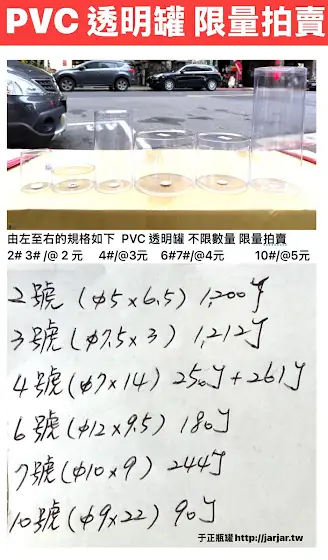 PVC 透明罐 限量拍賣
由左至右的規格如下 PVC 透明罐 不限數量 限量拍賣
2# 3# /@ 2 元 4#/@3元 6#7#/@4元 10#/@5元
2號 (φ5×6.5) 1,200個
3號 (φ7.5×3) 1,212個
4號 (φ7×14) 250個+261個
6號 (φ12×9.5) 180個
7號 (φ10×9) 244個
10號 (φ9×22) 90個
于正瓶罐 http://jarjar.tw